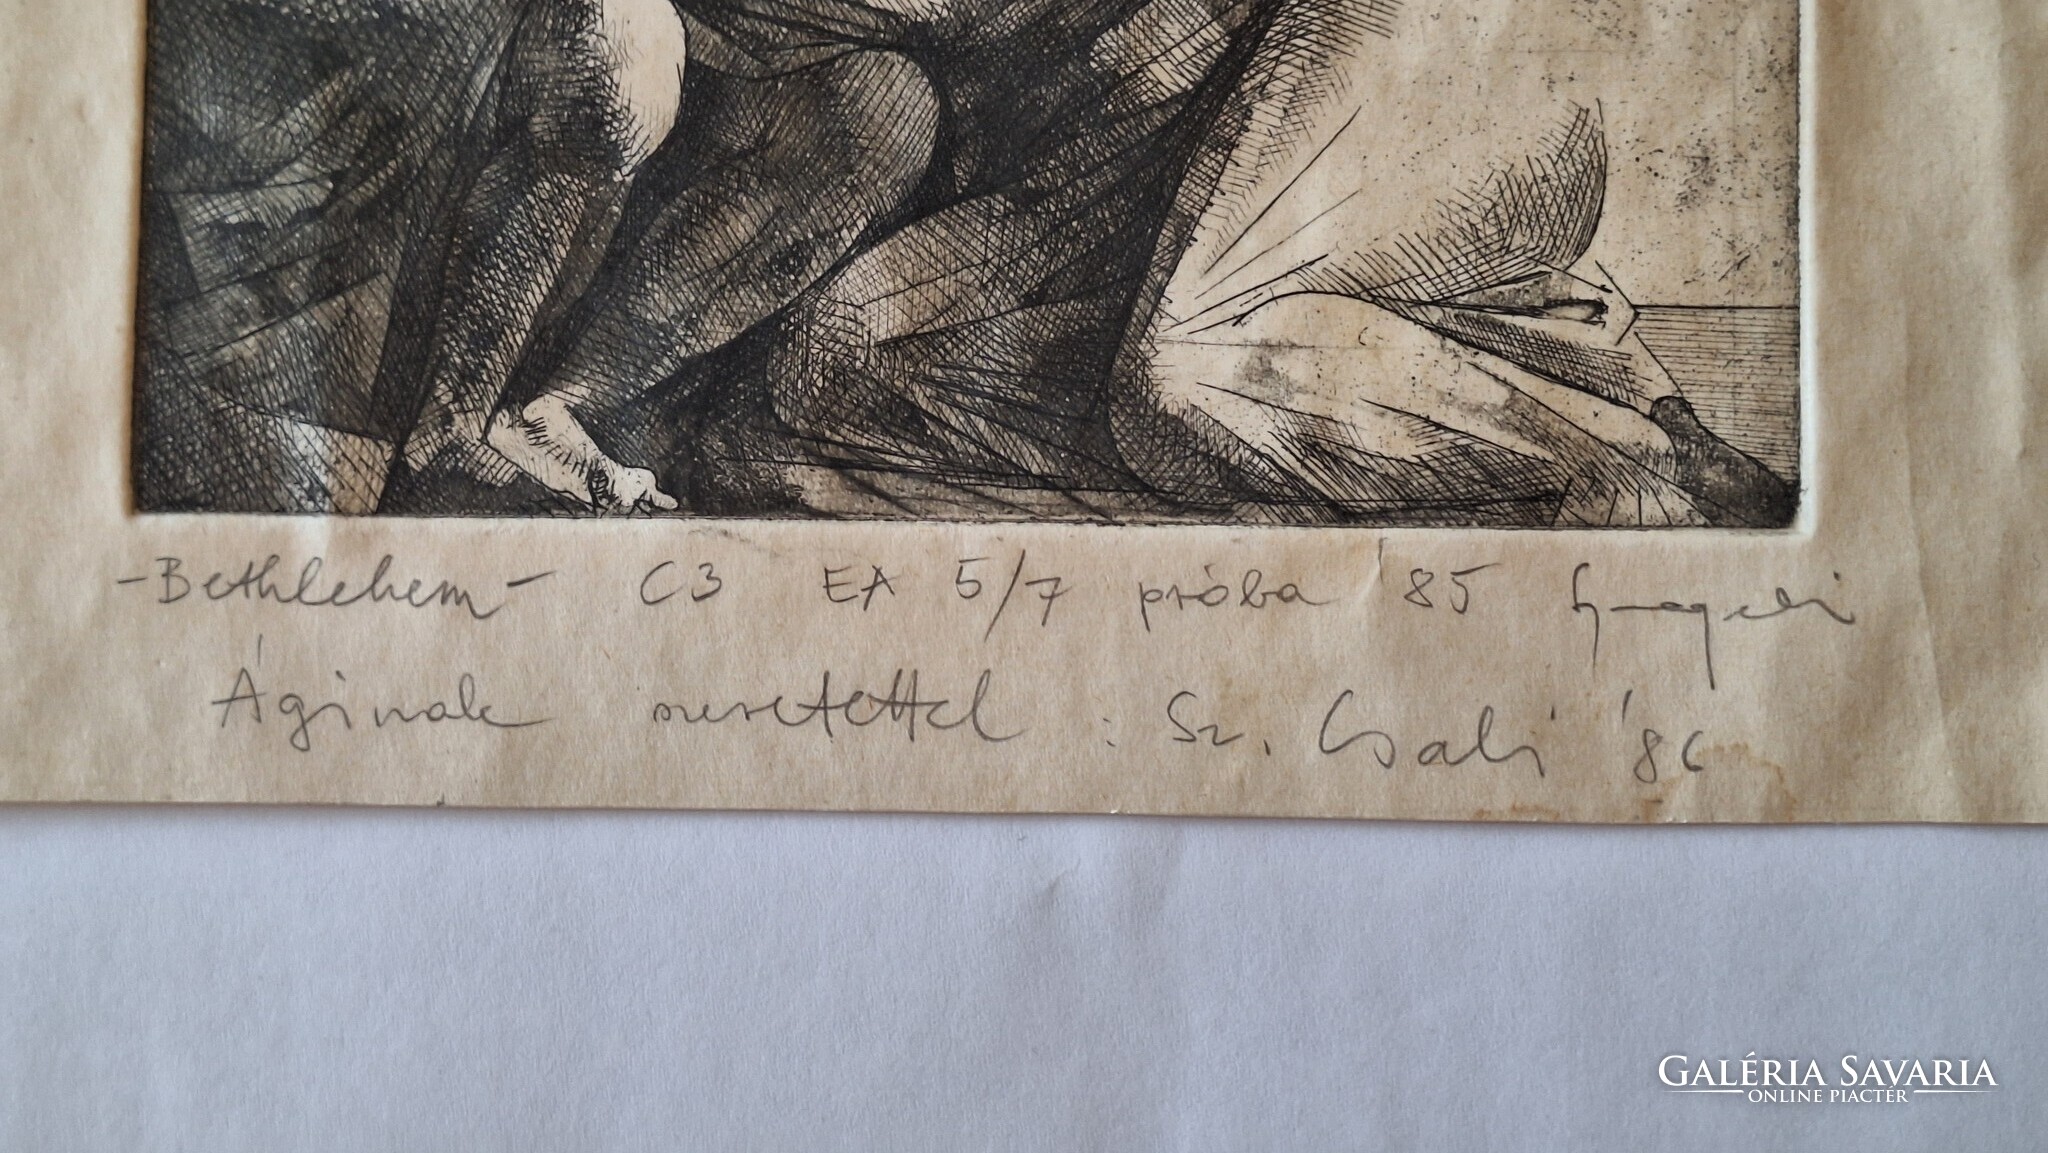 -Bethlehem- C3 EA 5/7 próba 85
Áginak szeretettel : Sz. Csabi '86
GALÉRIA SAVARIA
ONLINE PIACTÉR